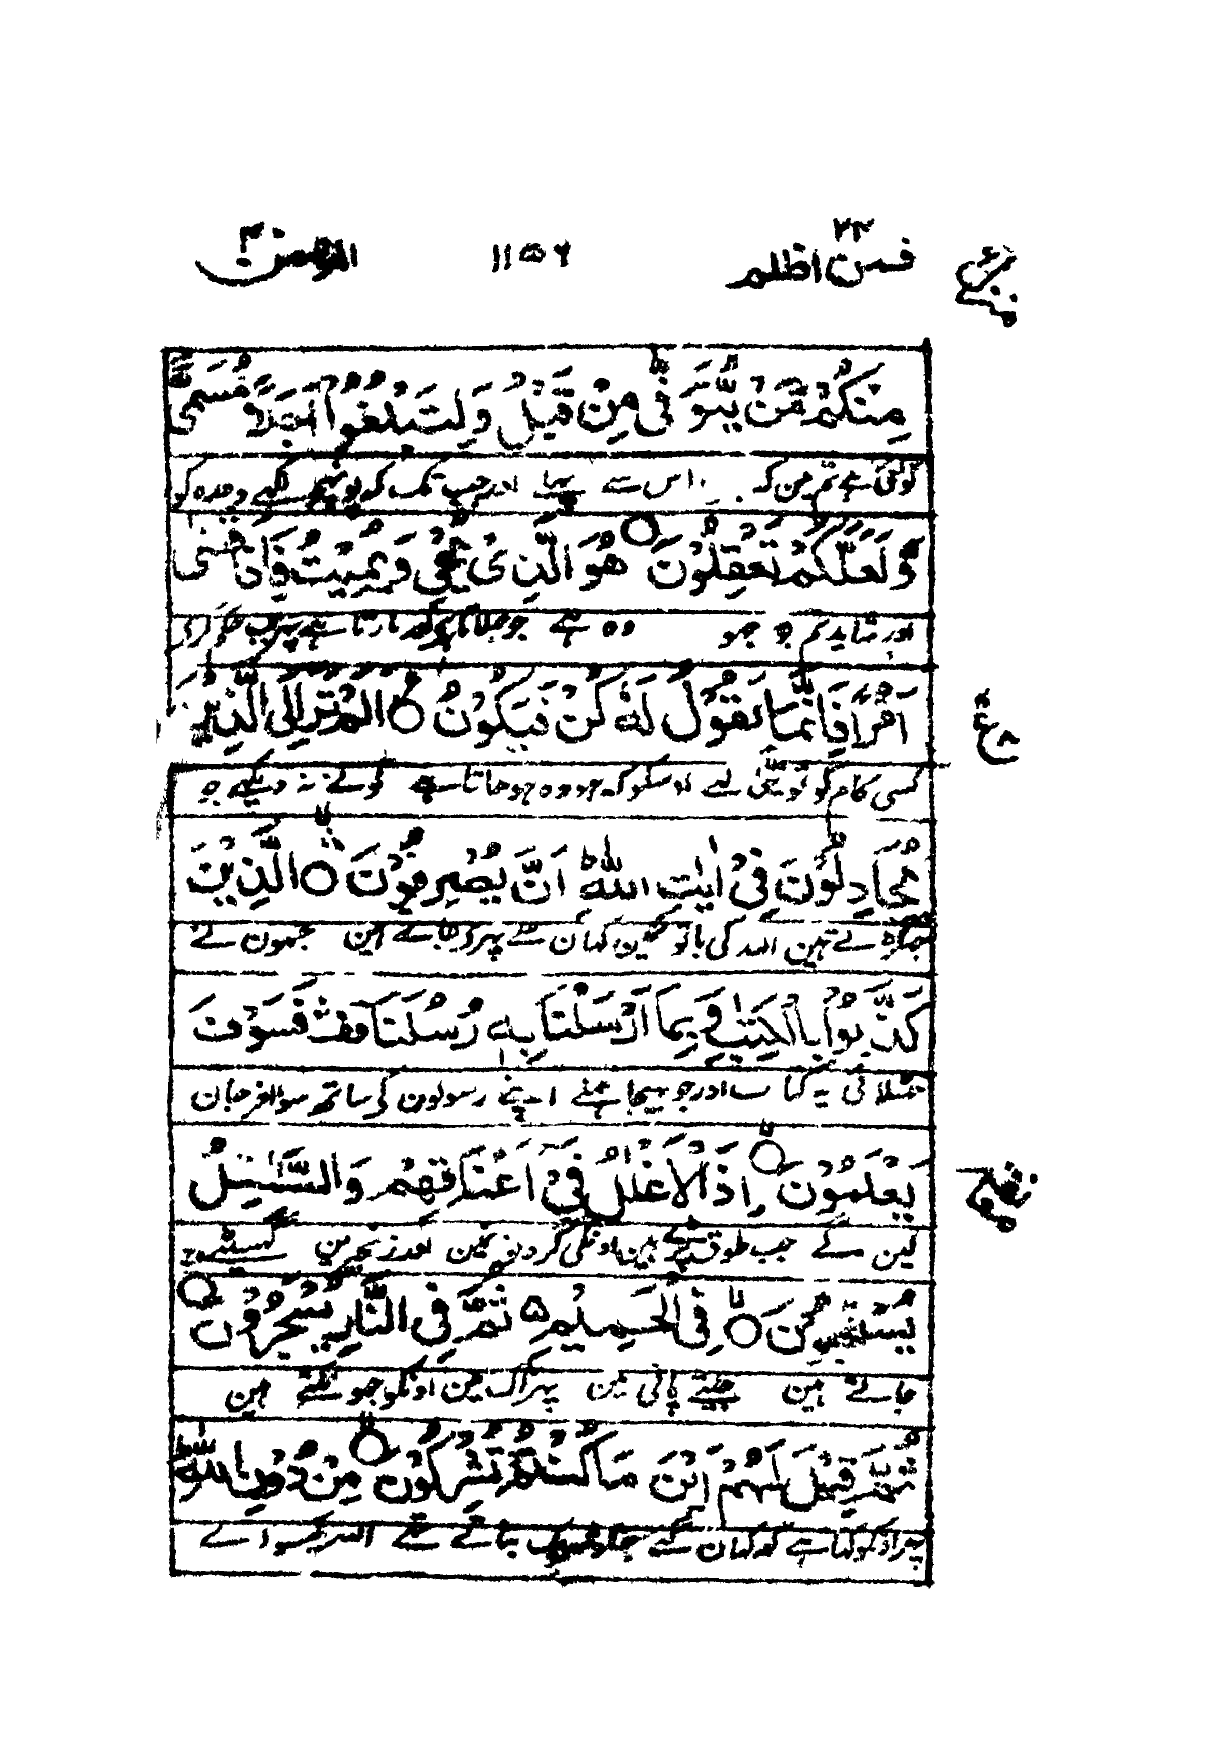 فمن اظلم ٢٤ ١١٥٦ المؤمن ٤٠
مِنْكُمْ مَّنْ يُّتَوَفّٰى مِنْ قَبْلُ وَلِتَبْلُغُوْٓا اَجَلًا مُّسَمًّى
کوئی ہے تم مین کہ اس سے پہلے اور جب تک کہ پہنچو لکھے وعدہ کو
وَّلَعَلَّكُمْ تَعْقِلُوْنَ ○ هُوَ الَّذِىْ يُحْىٖ وَيُمِيْتُ فَاِذَا قَضٰٓى
اور شاید تم بوجھو وہ ہے جو جلاتا اور مارتا ہے پھر جب حکم کرے
اَمْرًا فَاِنَّمَا يَقُوْلُ لَهٗ كُنْ فَيَكُوْنُ ○ اَلَمْ تَرَ اِلَى الَّذِيْنَ
کسی کام کو تو یہی کہے اوسکو کہ ہو وہ ہو جاتا ہے تو نے نہ دیکھے جو
يُجَادِلُوْنَ فِىْٓ اٰيٰتِ اللّٰهِ اَنّٰى يُصْرَفُوْنَ ○ الَّذِيْنَ
جھگڑتے ہین اللہ کی باتون مین کہان سے پھیرے جاتے ہین جنہون نے
كَذَّبُوْا بِالْكِتٰبِ وَبِمَآ اَرْسَلْنَا بِهٖ رُسُلَنَا فَسَوْفَ
جھٹلائی یہ کتاب اور جو بھیجا ہمنے اپنے رسولون کی ساتھ سو آخر جان
يَعْلَمُوْنَ ○ اِذِ الْاَغْلٰلُ فِىْٓ اَعْنَاقِهِمْ وَالسَّلٰسِلُ
لین گے جب طوق پڑے ہین اونکی گردنون مین اور زنجیرین گھسیٹے
يُسْحَبُوْنَ ○ فِى الْحَمِيْمِ ۵ ثُمَّ فِى النَّارِ يُسْجَرُوْنَ ○
جاتے ہین جلتے پانی مین پھر آگ مین اونکو جھونکتے ہین
ثُمَّ قِيْلَ لَهُمْ اَيْنَ مَا كُنْتُمْ تُشْرِكُوْنَ ○ مِنْ دُوْنِ اللّٰهِ
پھر اونکو کہا ہے کہ کہان گئے جنکو شریک بتاتے تھے اللہ کے سوائے
ع ٨